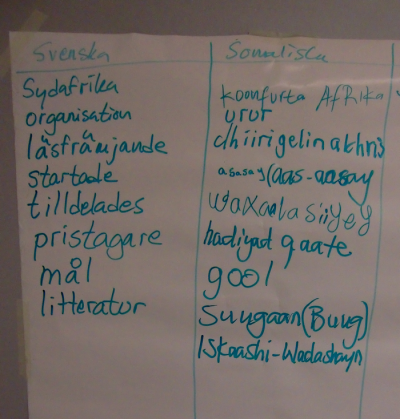 Svenska
Somaliska
Sydafrika
koonfurta AfRika
organisation
urur
läsfrämjande
dhiirigelin akhris
startade
asasay (aas-aasay
tilldelades
pristagare
hadiyad qaate
mål
gool
litteratur
Suugaan (Buug)
Iskaashi-Wadashayn